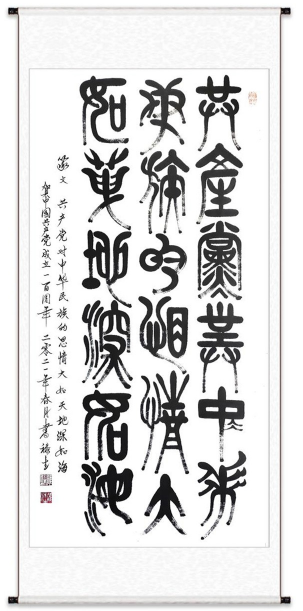 共產黨對中華
民族的恩情大
如天地深如海
篆文 共产党对中华民族的恩情大如天地深如海
贺中国共产党成立一百周年 二零二一年春月書